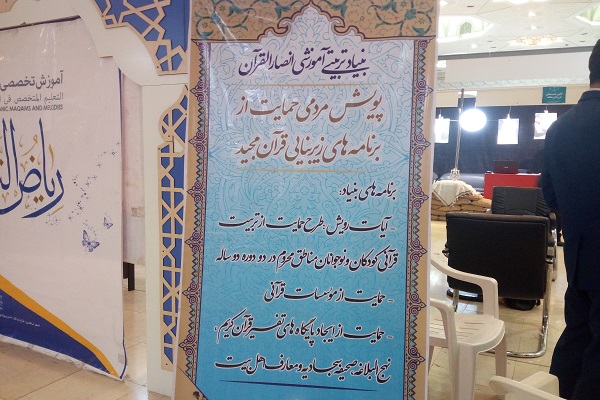 بنیاد تربیتی آموزشی انصار القرآن
پویش مردمی حمایت از
برنامه های زیربنایی قرآن مجید
برنامه های بنیاد:
- آیات رویش: طرح حمایت از تربیت
قرآنی کودکان و نوجوانان مناطق محروم در دو دوره دو ساله
- حمایت از مؤسسات قرآنی
- حمایت از ایجاد پایگاه های تفسیر قرآن کریم،
نهج البلاغه، صحیفه سجادیه و معارف اهل بیت
آموزش تخصصی
التعليم المتخصص في
MAQAMS AND MELODIES
ریاض